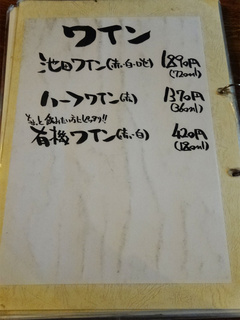 ワイン
池田ワイン(赤・白・ロゼ) 1890円
(720ml)
ハーフワイン(赤) 1370円
(360ml)
ちょっと飲みたい方にピッタリ!!
有機ワイン(赤・白) 420円
(180ml)